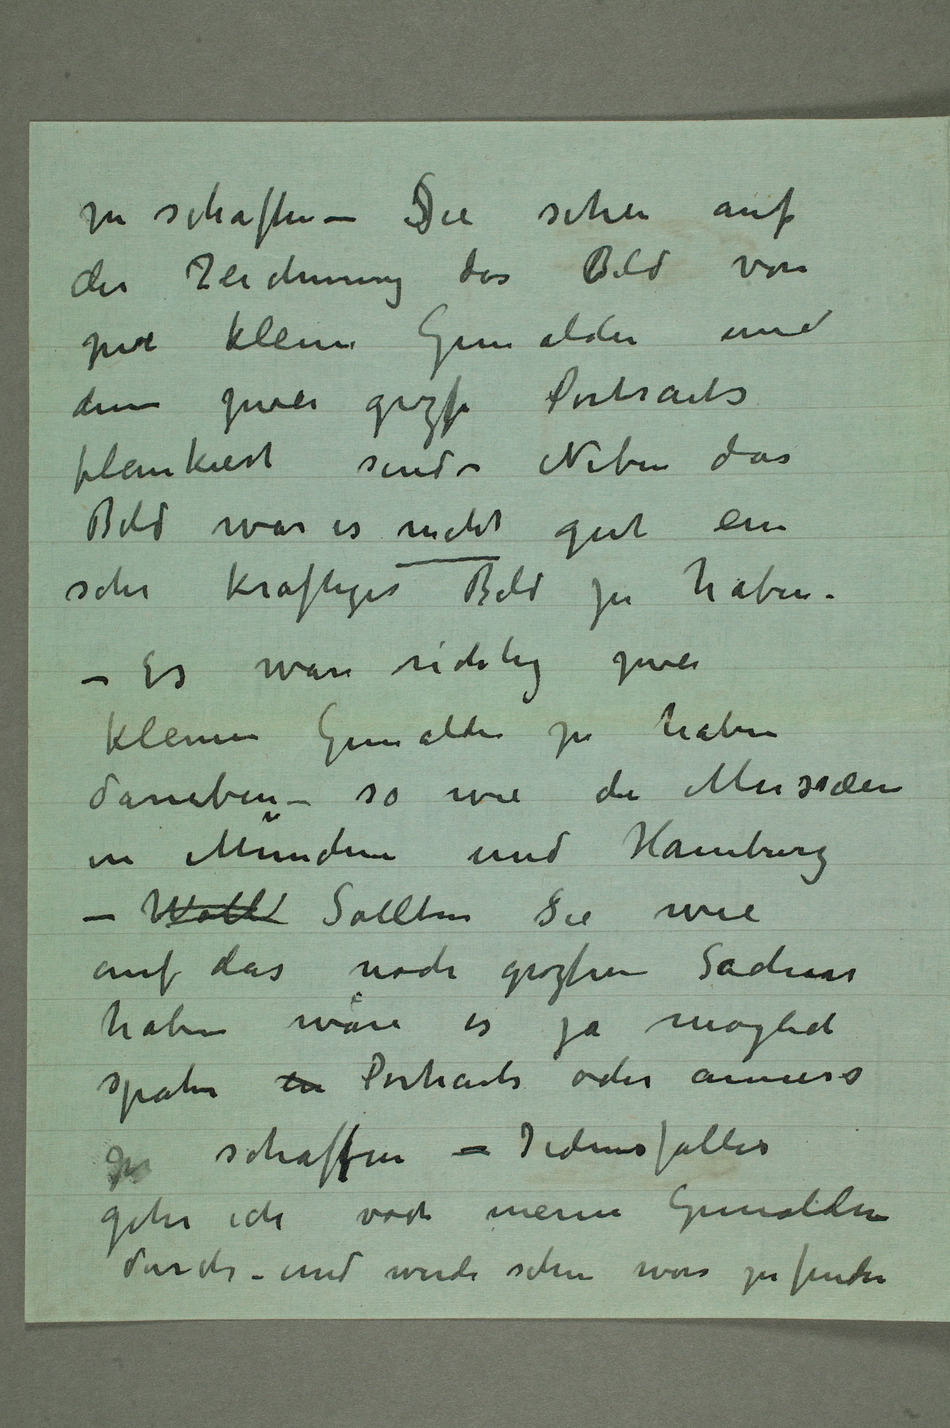 zu schaffen – Sie sehen auf
der Zeichnung das Bild von
zwei kleine Gemälder und
denn zwei grozße Portraits
flankiert sind – Neben das
Bild war es nicht gut ein
sehr kraftiges Bild zu haben –
– Es ware richtig zwei
kleinen Gemälder zu haben
daneben – so wie die Mussæen
in München und Hamburg
– Wollt Sollten Sie wie
auf das noch grozßen Sachen
haben wäre es ja moglich
spater ein Portraits oder anners
zu schaffen – Jedensfalles
gehe ich noch meine Gemälden
durch – und werde sehen was zu finden